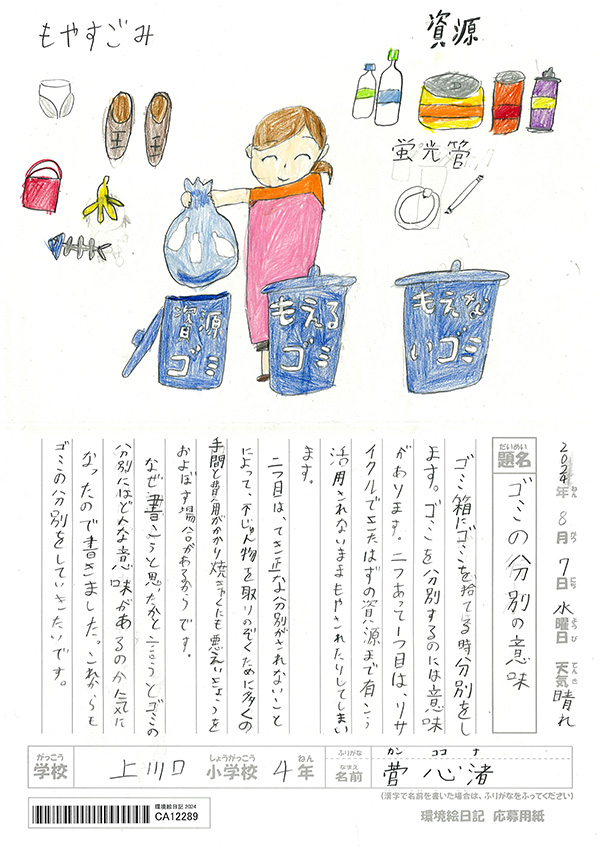 もやすごみ
資源
蛍光管
資源
ゴミ
もえる
ゴミ
もえな
いゴミ
2024年 8月 7日 水曜日 天気 晴れ
ねん がつ にち ようび てんき
だいめい
題名 ゴミの分別の意味
ゴミ箱にゴミを捨てる時分別をし
ます。ゴミを分別するのには意味
があります。二つあって1つ目は、リサ
イクルできたはずの資源まで有こう
活用されないままもやされたりしてしまい
ます。
二つ目は、てき正な分別がされないこと
によって、不じゅん物を取りのぞくために多くの
手間と費用がかかり焼きゃくにも悪えいきょうを
およぼす場合があるからです。
なぜ書こうと思ったかと言うとゴミの
分別にはどんな意味があるのか気に
なったので書きました。これからも
ゴミの分別をしていきたいです。
がっこう しょうがっこう ねん
学校 上川口 小学校 4年
ふりがな カン ココ ナ
なまえ
名前 菅 心渚
(漢字で名前を書いた場合は、ふりがなをふってください)
環境絵日記 2024
CA12289
環境絵日記 応募用紙